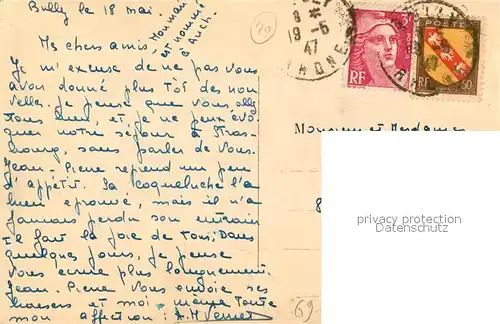 Bully le 18 mai.
Normand
est nommé
à Auch!
20
Mes chers amis,
Je m'excuse de ne pas vous
avoir donné plus tôt des nou
velles. Je pense que vous allez
tous bien, et je ne peux évo
quer notre séjour à Stras
bourg, sans parler de vous.
Jean-Pierre reprend un peu
d'appétit. Sa coqueluche l'a
bien éprouvé, mais il n'a
jamais perdu son entrain
Il fait la joie de tous; Dans
quelques jours, je pense
vous écrire plus longuement.
Jean-Pierre vous envoie ses
baisers et moi-même toute
mon affection: A.M Vernet
19-5
47
RHONE
RF
POSTE
RF 50c
Monsieur et Mesdames
8
69
privacy protection
www.ansichtskarten-center.de